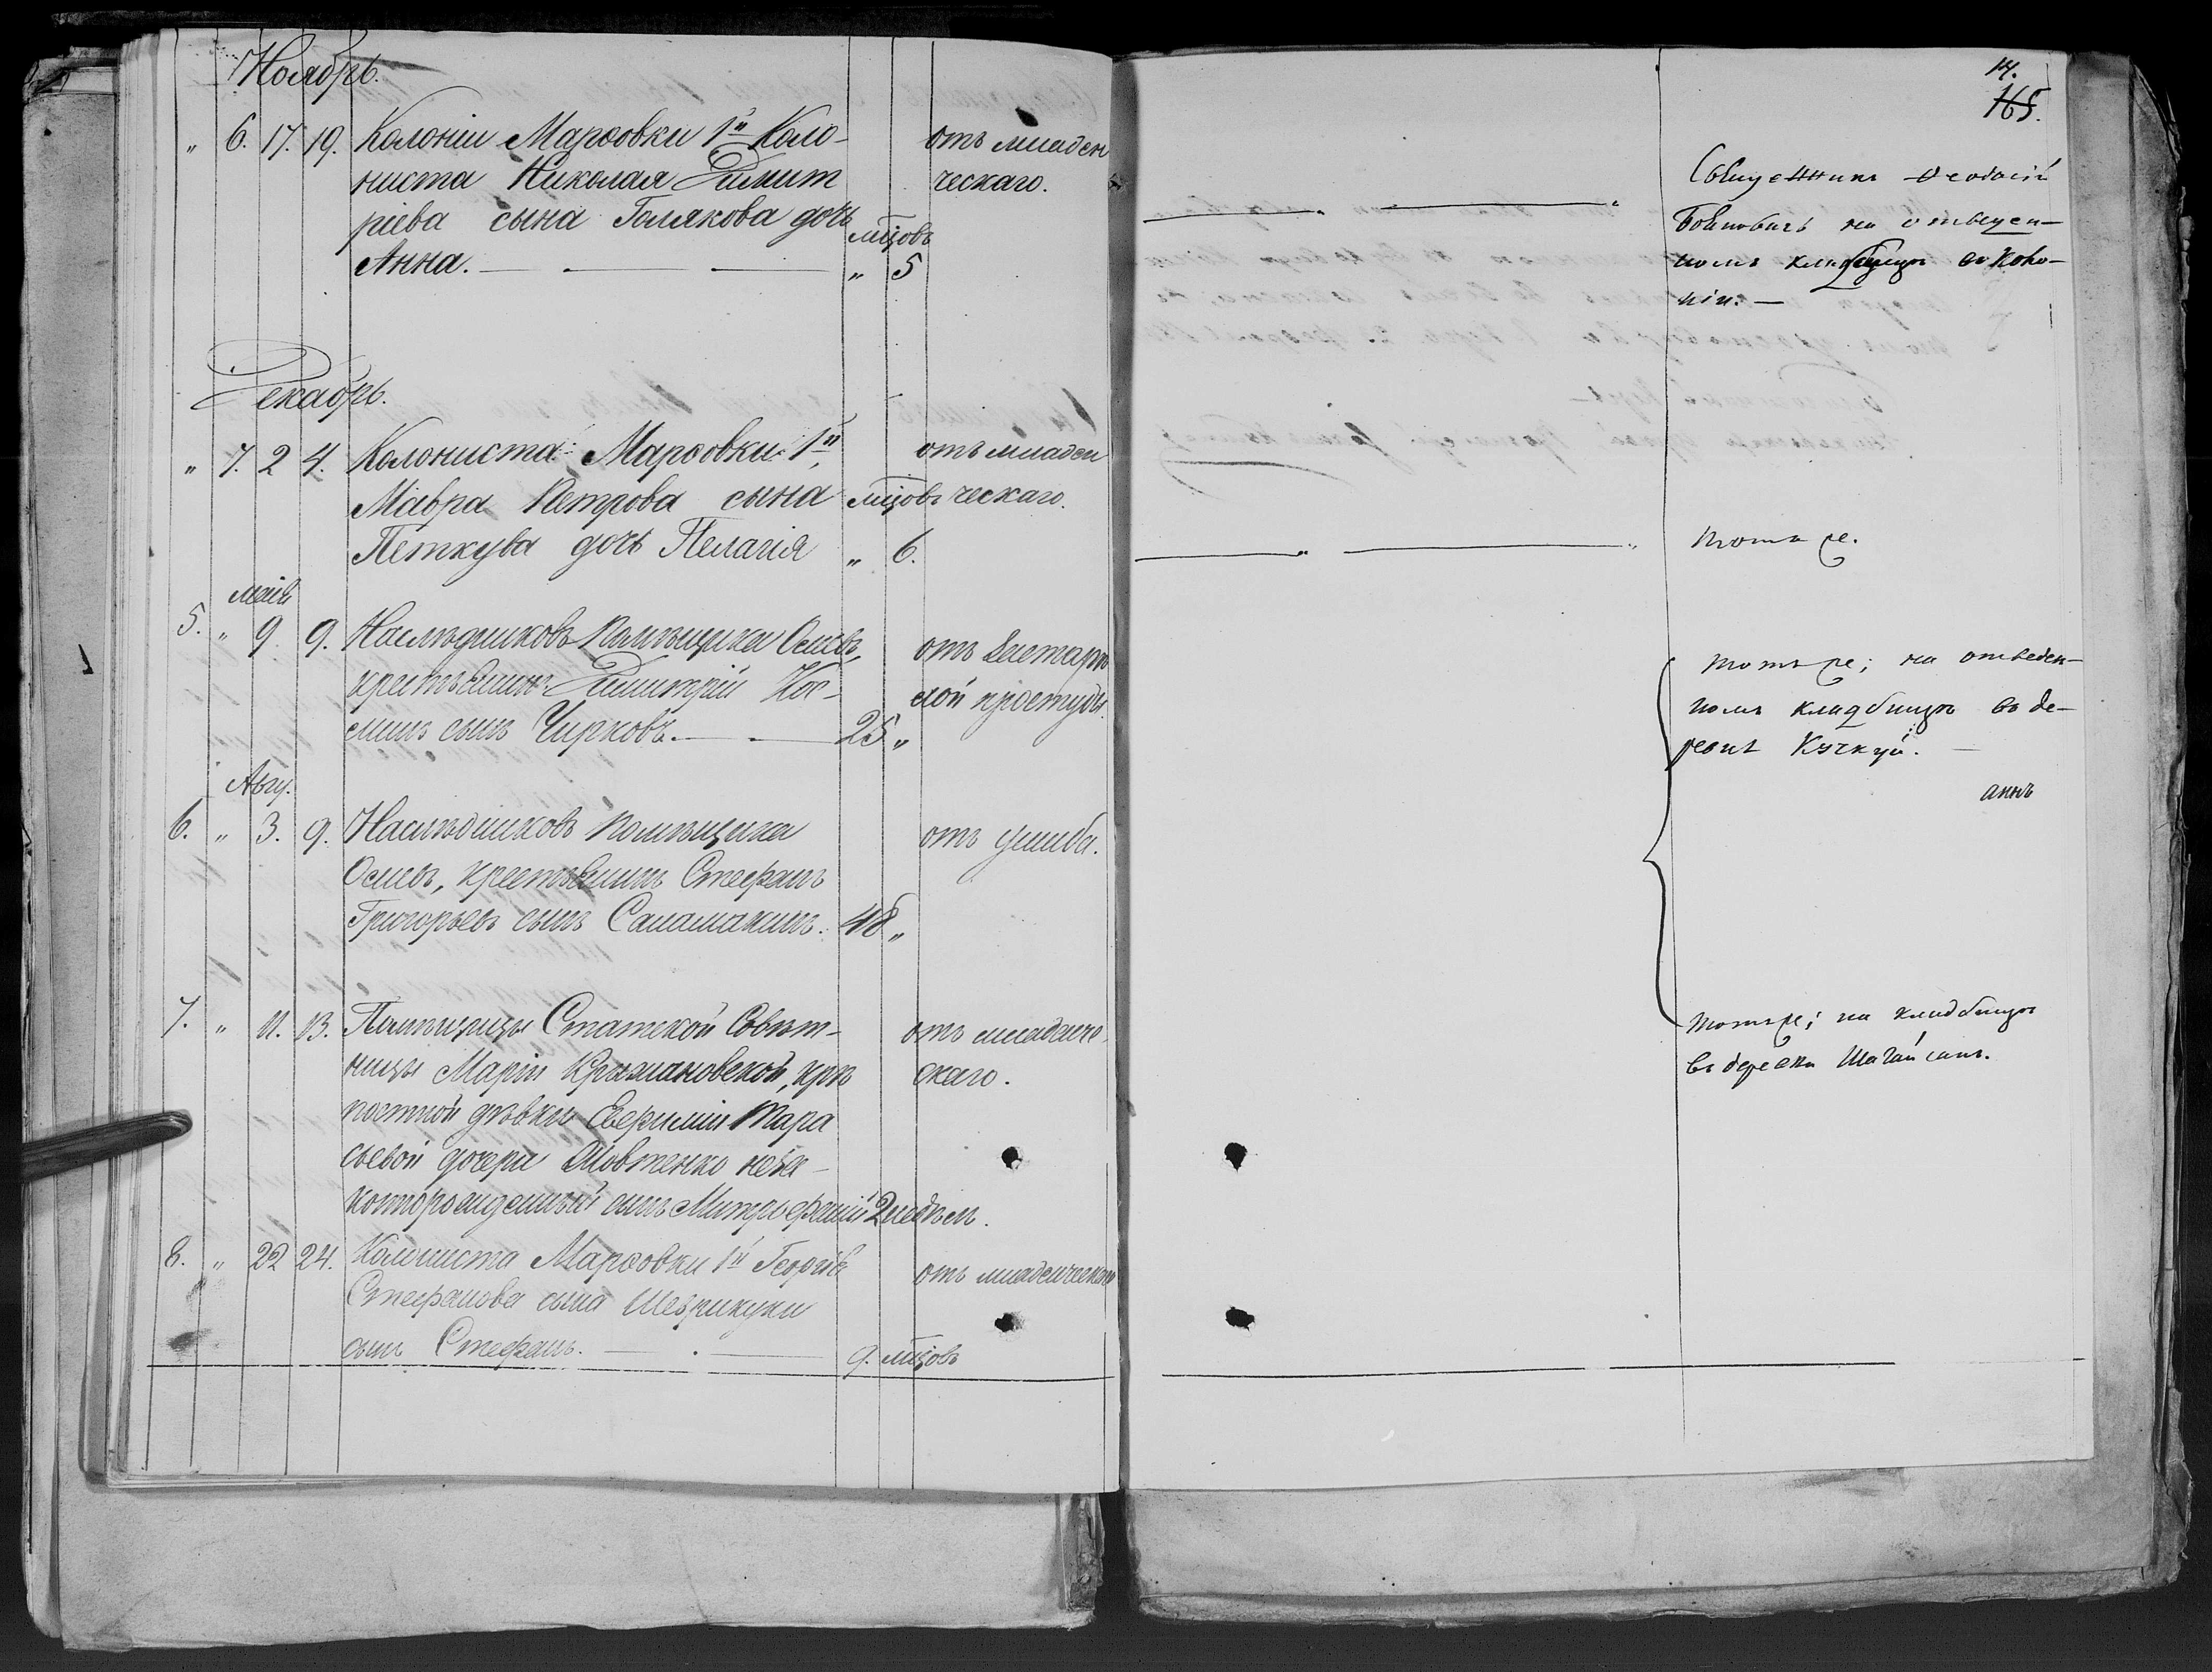 Ноябрь.
" 6. 17. 19. Колоніи Марѳовки 1й Коло-
ниста Николая Димит
ріева сына Голякова дочь
Анна. — — — " 5
мцовъ
отъ младен
ческаго.
Декабрь.
" 7. 2 4. Колониста Марѳовки 1й
Мавра Петрова сына
Петкува дочь Пелагія " 6.
мцовъ
отъ младен
ческаго.
маій
5. " 9 9. Наслѣдниковъ помѣщика
крестьянинъ Димитрій Кос-
минъ сынъ Чирковъ. — — 25 "
отъ
простуды.
Авгу.
6. " 3. 9. Наслѣдниковъ помѣщика
крестьянинъ Стефанъ
Григорьевъ сынъ Саламакинъ. 48 "
отъ ушиба.
7. " 11. 13. Помѣщицы Статской Совѣт-
ницы Маріи Крыжановской, крѣ
постной дѣвки Евфиміи Тара
сьевой дочери Мовтенко неза-
конторожденный сынъ Митрофаній 2 недѣли.
отъ младенче
скаго.
8. " 22 24. Колониста Марѳовки 1й Георгія
Стефанова сына
сынъ Стефанъ. — . — 9. мцовъ
отъ младенческаго
14.
165.
Священникъ Ѳеодосій
Бойновичъ на отведен-
номъ кладбищѣ въ Коло-
ніи. —
— " — "
тотъ же.
— " — "
тотъ же; на отведен-
номъ кладбищѣ въ де-
ревнѣ Кучкуй. —
аннъ
тотъ же; на кладбищѣ
въ деревни Шаганъ